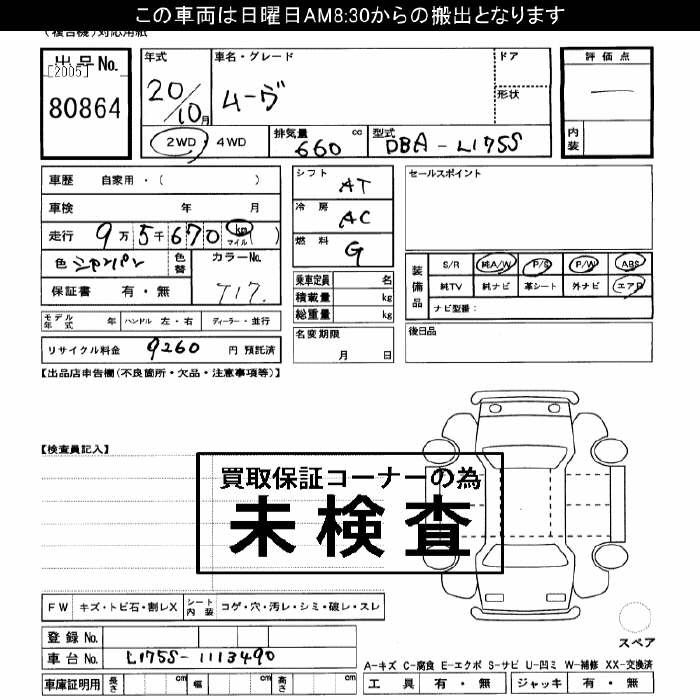 この車両は日曜日AM8:30からの搬出となります
(複合機)対応用紙
出品No.
[2005]
80864
年式
20/10月
車名・グレード
ムーヴ
ドア
形状
2WD・4WD
排気量 660 cc
型式 DBA-L175S
評価点
—
内装
車歴 自家用・( )
車検 年 月
走行 9万5千670 km マイル ( )
色 シャンパン
色替
カラーNo.
T17.
保証書 有・無
モデル年式 年 ハンドル 左・右 ディーラー・並行
リサイクル料金 9260 円 預託済
シフト AT
冷房 AC
燃料 G
乗車定員 名
積載量 kg
総重量 kg
名変期限
月 日
セールスポイント
装備品
S/R 純A/W P/S P/W ABS
純TV 純ナビ 革シート 外ナビ エアB
ナビ型番:
後日品
【出品店申告欄(不良箇所・欠品・注意事項等)】
【検査員記入】
買取保証コーナーの為
未検査
FW キズ・トビ石・割レX シート内装 コゲ・穴・汚レ・シミ・破レ・スレ
登録No.
車台No. L175S-1113490
車庫証明用 長さ cm 幅 cm 高さ cm
スペア
A-キズ C-腐食 E-エクボ S-サビ U-凹ミ W-補修 XX-交換済
工具 有・無 ジャッキ 有・無